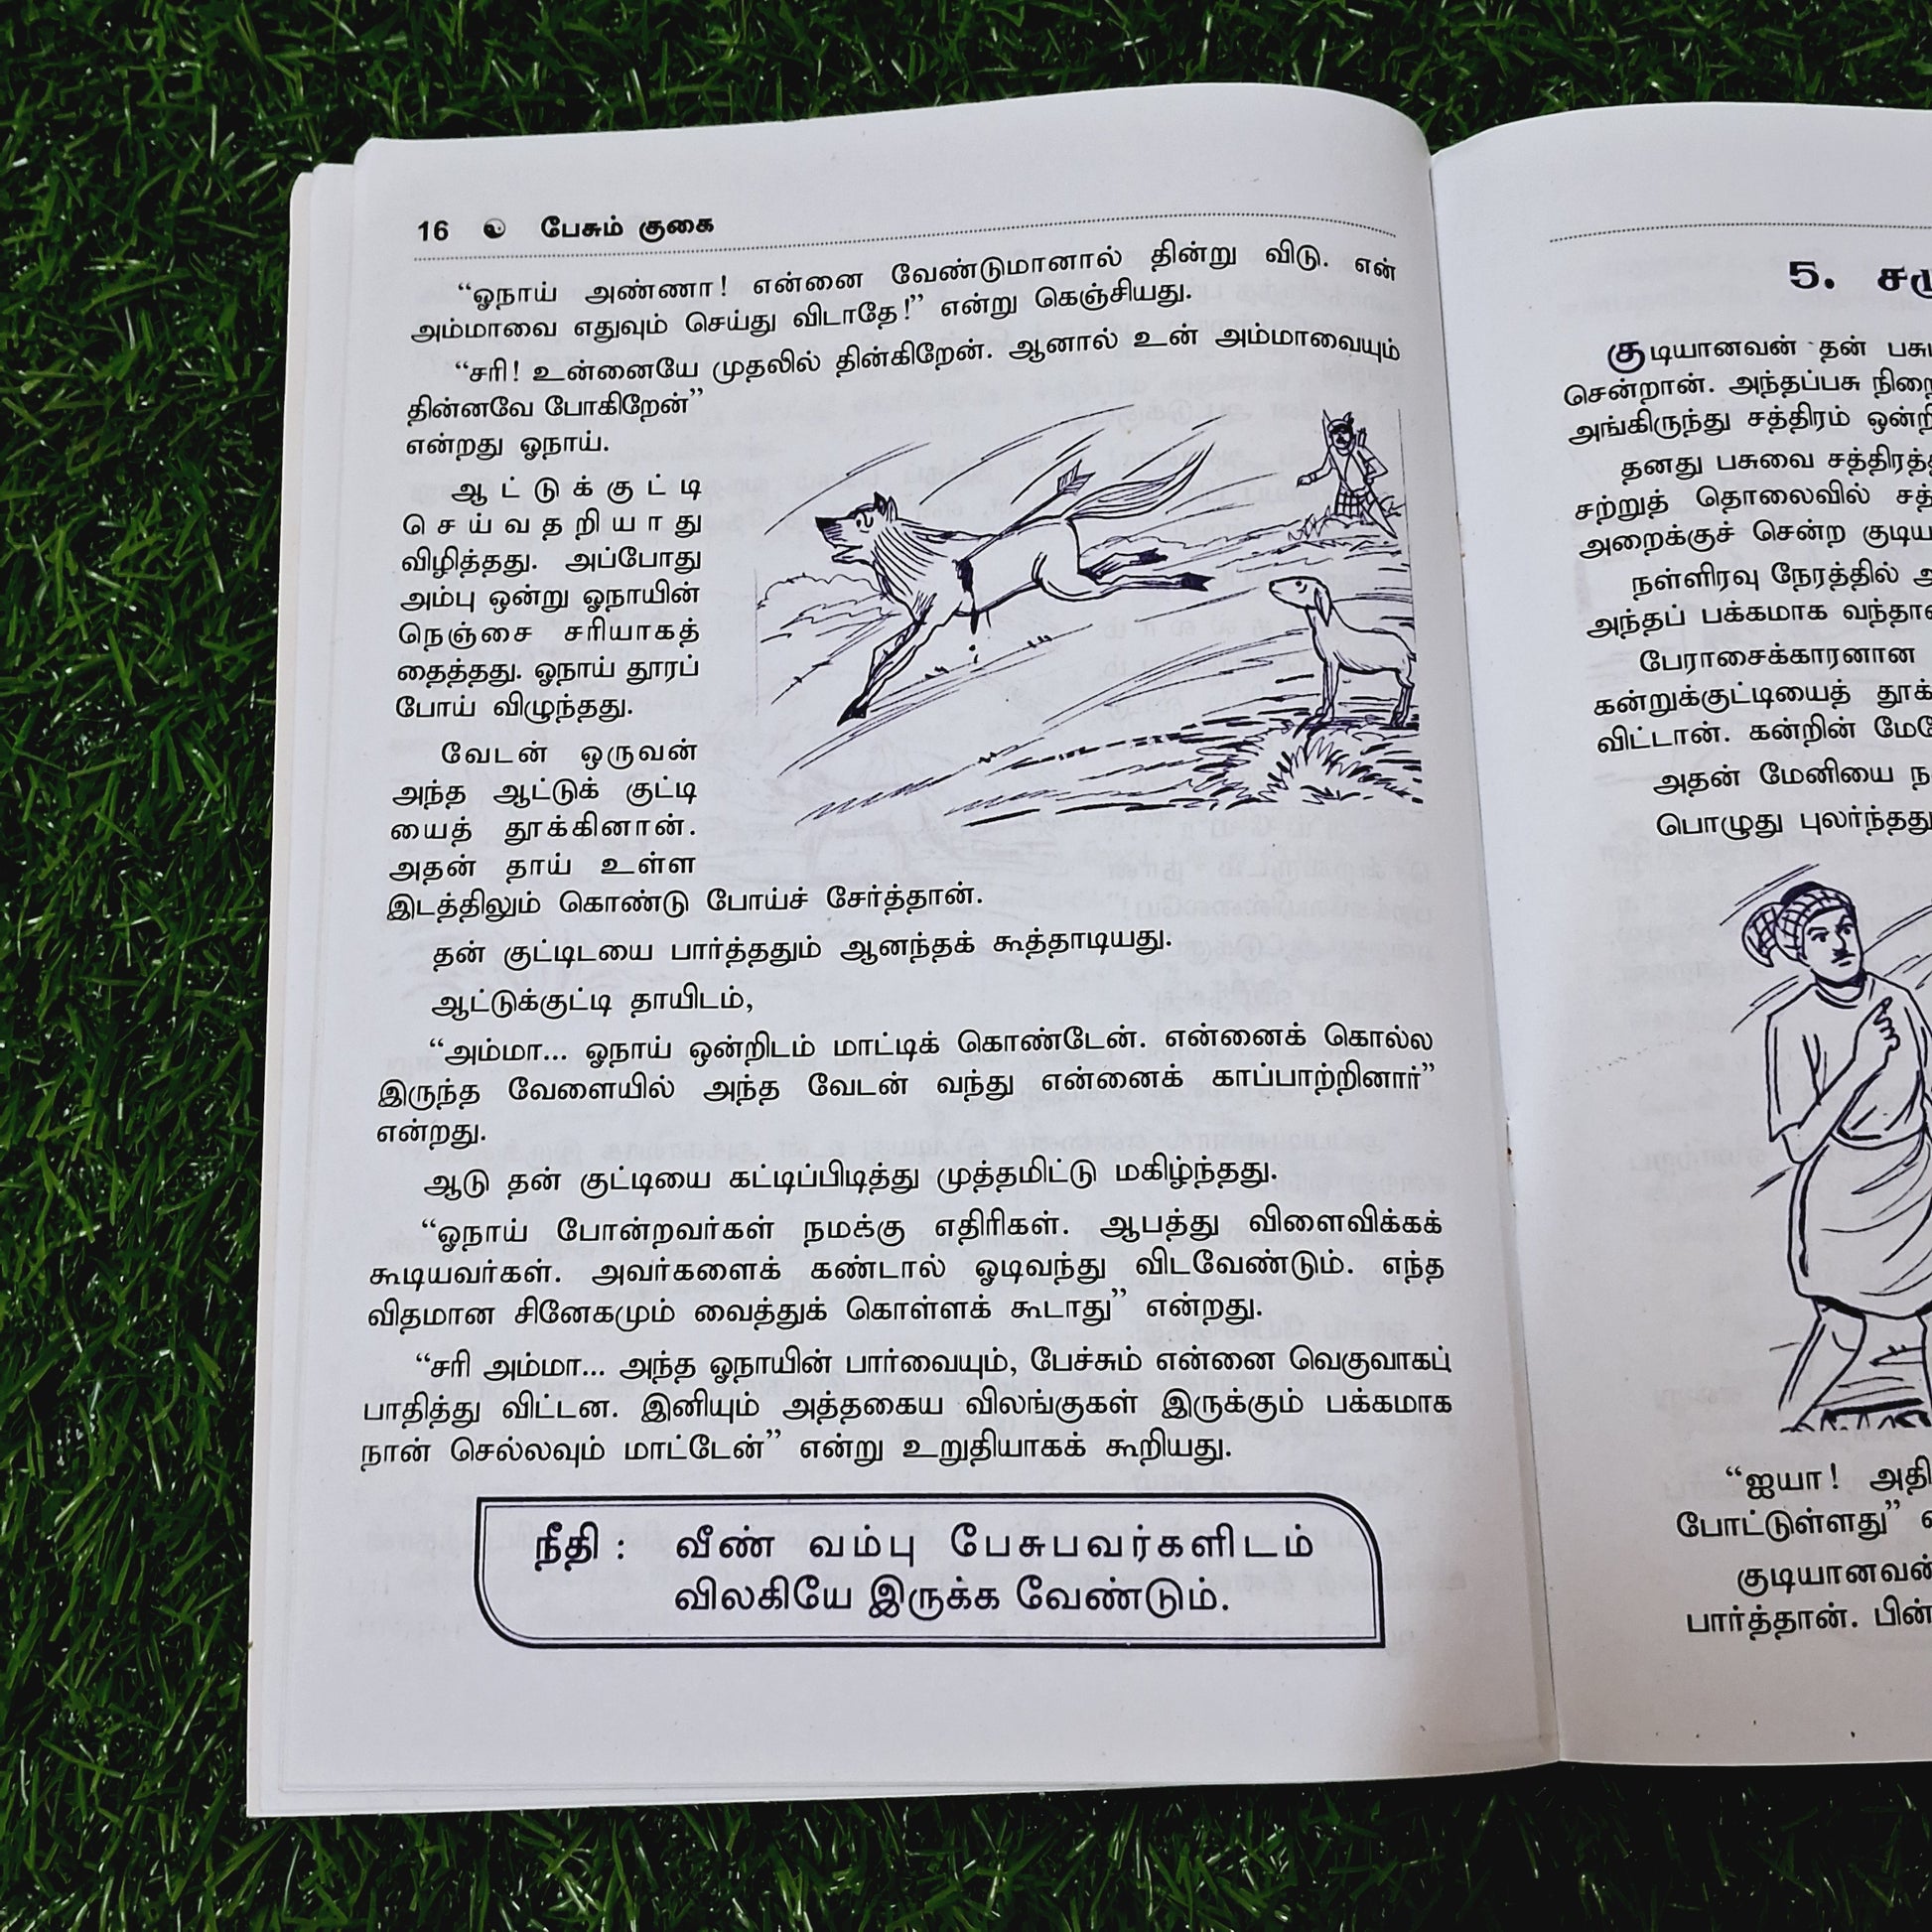 16 பேசும் குகை
“ஓநாய் அண்ணா! என்னை வேண்டுமானால் தின்று விடு. என்
அம்மாவை எதுவும் செய்து விடாதே!” என்று கெஞ்சியது.
“சரி! உன்னையே முதலில் தின்கிறேன். ஆனால் உன் அம்மாவையும்
தின்னவே போகிறேன்”
என்றது ஓநாய்.
ஆட்டுக்குட்டி
செய்வதறியாது
விழித்தது. அப்போது
அம்பு ஒன்று ஓநாயின்
நெஞ்சை சரியாகத்
தைத்தது. ஓநாய் தூரப்
போய் விழுந்தது.
வேடன் ஒருவன்
அந்த ஆட்டுக் குட்டி
யைத் தூக்கினான்.
அதன் தாய் உள்ள
இடத்திலும் கொண்டு போய்ச் சேர்த்தான்.
தன் குட்டிடயை பார்த்ததும் ஆனந்தக் கூத்தாடியது.
ஆட்டுக்குட்டி தாயிடம்,
“அம்மா... ஓநாய் ஒன்றிடம் மாட்டிக் கொண்டேன். என்னைக் கொல்ல
இருந்த வேளையில் அந்த வேடன் வந்து என்னைக் காப்பாற்றினார்”
என்றது.
ஆடு தன் குட்டியை கட்டிப்பிடித்து முத்தமிட்டு மகிழ்ந்தது.
“ஓநாய் போன்றவர்கள் நமக்கு எதிரிகள். ஆபத்து விளைவிக்கக்
கூடியவர்கள். அவர்களைக் கண்டால் ஓடிவந்து விடவேண்டும். எந்த
விதமான சினேகமும் வைத்துக் கொள்ளக் கூடாது” என்றது.
“சரி அம்மா... அந்த ஓநாயின் பார்வையும், பேச்சும் என்னை வெகுவாகப்
பாதித்து விட்டன. இனியும் அத்தகைய விலங்குகள் இருக்கும் பக்கமாக
நான் செல்லவும் மாட்டேன்” என்று உறுதியாகக் கூறியது.
நீதி : வீண் வம்பு பேசுபவர்களிடம்
விலகியே இருக்க வேண்டும்.
5.
குடியானவன் தன்
சென்றான். அந்தப்பசு
அங்கிருந்து சத்திரம்
தனது பசுவை
சற்றுத் தொலைவில்
அறைக்குச் சென்ற
நள்ளிரவு நேரத்தில்
அந்தப் பக்கமாக
பேராசைக்காரனான
கன்றுக்குட்டியைத்
விட்டான். கன்றின்
அதன் மேனியை
பொழுது புலர்ந்தது
“ஐயா!
போட்டுள்ளது”
குடியானவன்
பார்த்தான்.